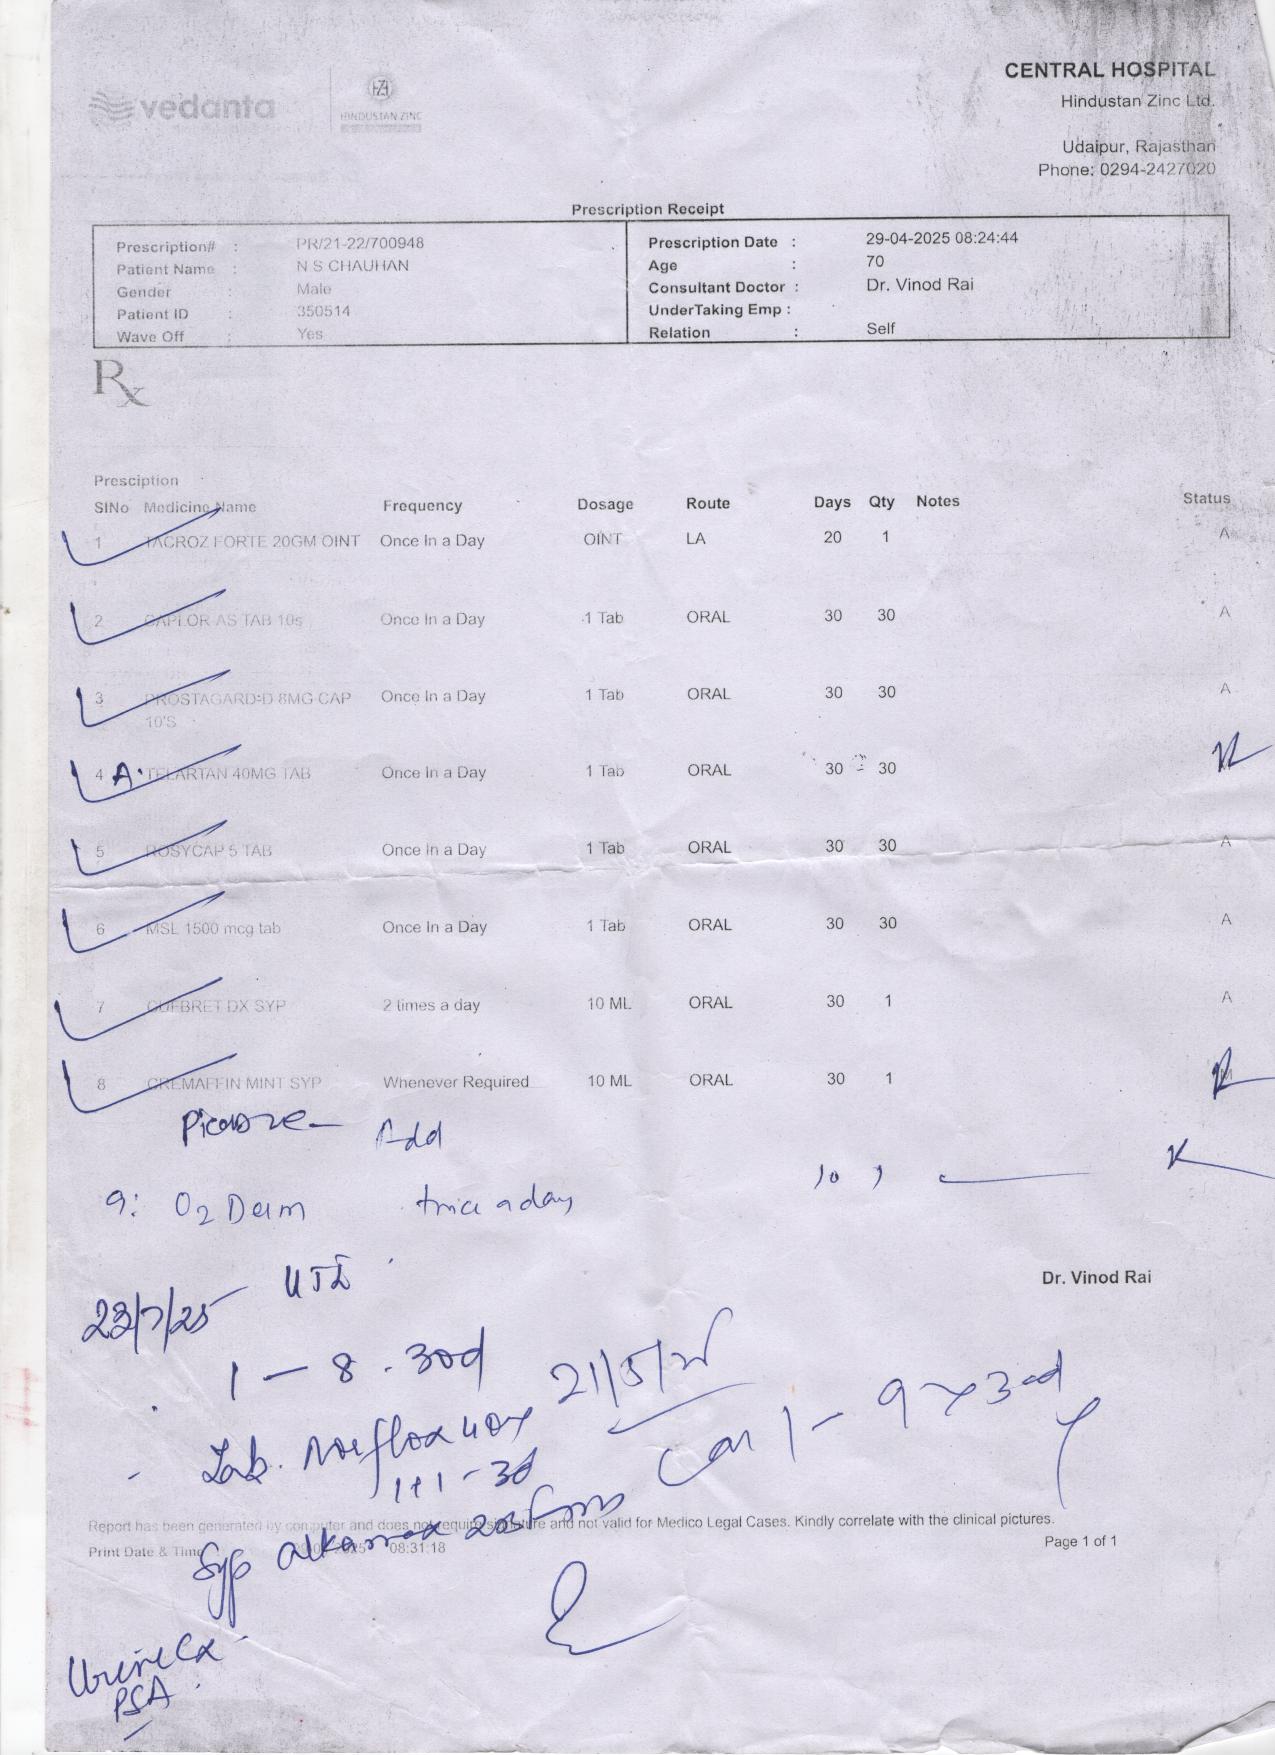 vedanta
HINDUSTAN ZINC
CENTRAL HOSPITAL
Hindustan Zinc Ltd.
Udaipur, Rajasthan
Phone: 0294-2427020
Prescription Receipt
Prescription# : PR/21-22/700948
Patient Name : N S CHAUHAN
Gender : Male
Patient ID : 350514
Wave Off : Yes
Prescription Date : 29-04-2025 08:24:44
Age : 70
Consultant Doctor : Dr. Vinod Rai
UnderTaking Emp :
Relation : Self
Rx
Presciption
SlNo Medicine Name Frequency Dosage Route Days Qty Notes Status
1 TACROZ FORTE 20GM OINT Once In a Day OINT LA 20 1 A
2 CAPLOR AS TAB 10s Once In a Day 1 Tab ORAL 30 30 A
3 PROSTAGARD-D 8MG CAP Once In a Day 1 Tab ORAL 30 30 A
10'S
4 A. TELARTAN 40MG TAB Once In a Day 1 Tab ORAL 30 30
5 ROSYCAP 5 TAB Once in a Day 1 Tab ORAL 30 30 A
6 MSL 1500 mcg tab Once In a Day 1 Tab ORAL 30 30 A
7 CUFBRET DX SYP 2 times a day 10 ML ORAL 30 1 A
8 CREMAFFIN MINT SYP Whenever Required 10 ML ORAL 30 1
Add
9: O2 Derm twice a day 10 1
Dr. Vinod Rai
23/7/25 UTI
1 - 8 . 30d
21/5/25
1 - 9 x 30d
Tab. Norflox 400
1+1 - 3d
Report has been generated by computer and does not require signature and not valid for Medico Legal Cases. Kindly correlate with the clinical pictures.
Print Date & Time 08:31:18
Page 1 of 1
Syp
Urine
PSA